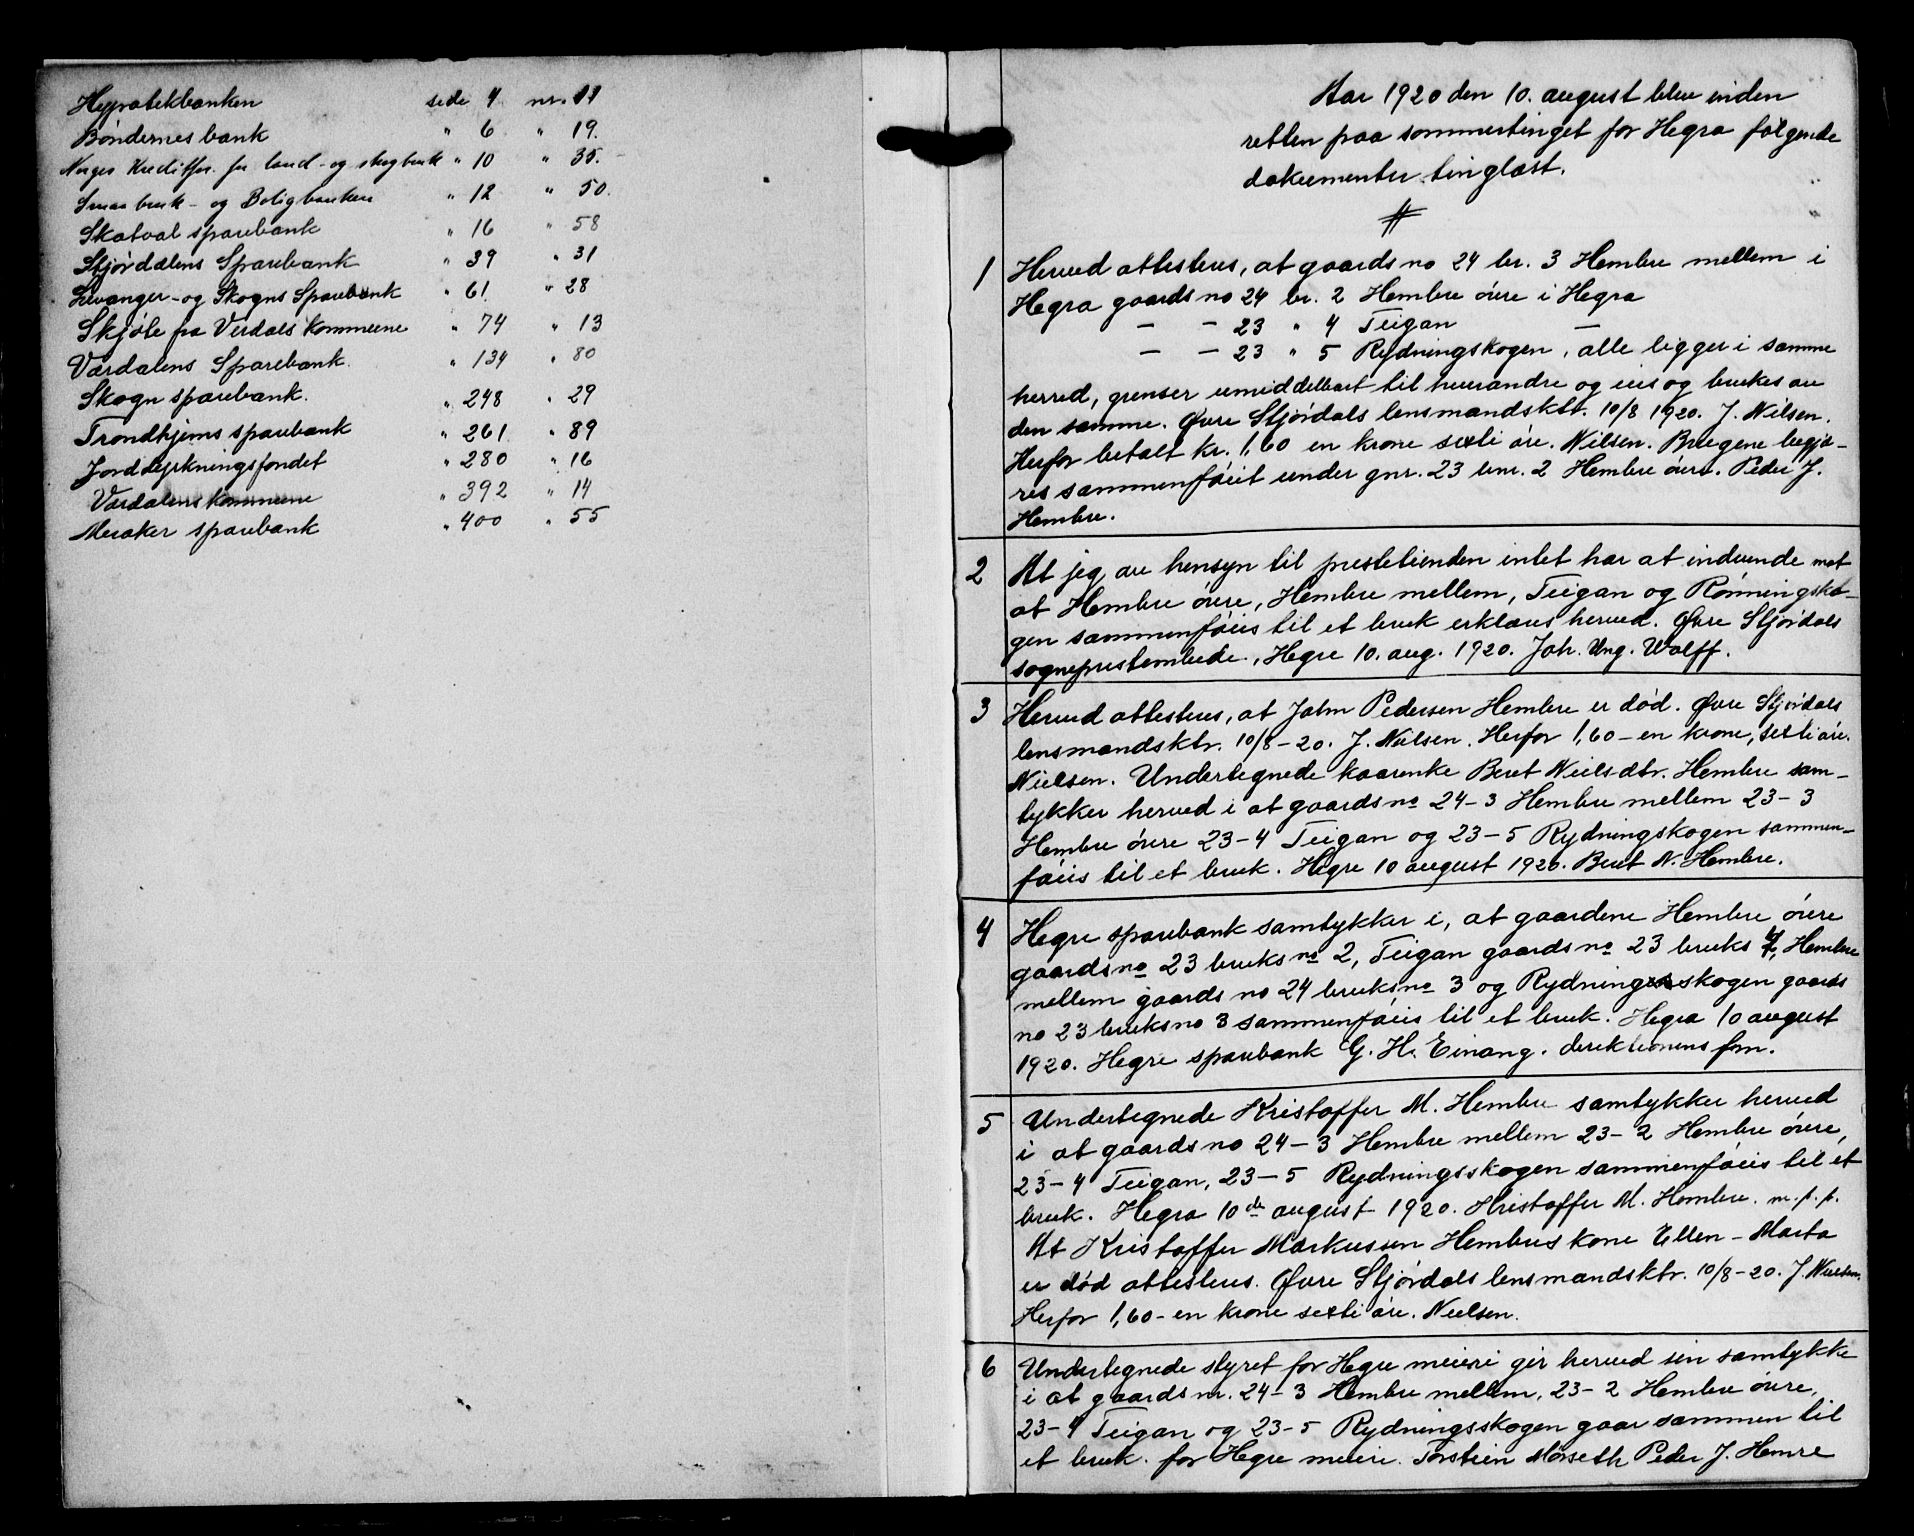 Hypotekbanken side 4 nr. 11
Bøndernes bank " 6 " 19.
Norges Kreditfor. for land- og skogbruk " 10 " 35.
Smaabruk- og Boligbanken " 12 " 50.
Skatval sparebank " 16 " 58
Stjørdalens Sparebank " 39 " 31
Levanger- og Skogns Sparebank " 61 " 28
Skjøte fra Verdals kommune " 74 " 13
Værdalens Sparebank. " 134 " 80
Skogn sparebank. " 248 " 29
Trondhjems sparebank " 261 " 89
Jorddyrkningsfondet " 280 " 16
Værdalens kommune " 392 " 14
Meraker sparebank " 400 " 55
Aar 1920 den 10. august blev inden
retten paa sommertinget for Hegra følgende
dokumenter tinglæst.
1 Herved attesteres, at gaards no 24 br. 3 Hembre mellem i
Hegra gaards no 24 br. 2 Hembre øvre i Hegra
— — 23 " 4 Teigan —
— — 23 " 5 Rydningskogen, alle ligger i samme
herred, grenser umiddelbart til hverandre og eies og brukes av
den samme. Øvre Stjørdals lensmandsktr. 10/8 1920. J. Nielsen.
Herfor betalt kr. 1,60 en krone sexti øre. Nielsen. Brukene begjæ-
res sammenføiet under gnr. 23 bnr. 2 Hembre øvre. Peder J.
Hembre.
2 At jeg av hensyn til prestetienden intet har at indvende mot
at Hembre øvre, Hembre mellem, Teigan og Rønningsko-
gen sammenføies til et bruk erklæres herved. Øvre Stjørdals
sogneprestembede, Hegre 10. aug. 1920. Joh. Ung. Wolff.
3 Herved attesteres, at John Pedersen Hembre er død. Øvre Stjørdals
lensmandsktr. 10/8-20. J. Nielsen. Herfor 1,60 - en krone, sexti øre.
Nielsen. Undertegnede kaarenke Beret Nielsdtr. Hembre sam-
tykker herved i at gaards no 24-3 Hembre mellem 23-3
Hembre øvre 23-4 Teigan og 23-5 Rydningskogen sammen-
føies til et bruk. Hegre 10 august 1920. Beret N. Hembre.
4 Hegre sparebank samtykker i, at gaardene Hembre øvre
gaards no 23 bruks no 2, Teigan gaards no 23 bruks 4, Hembre
mellem gaards no 24 bruksno 3 og Rydningsskogen gaards
no 23 bruksno 3 sammenføies til et bruk. Hegra 10 august
1920. Hegre sparebank G. H. Einang. direktionens fm.
5 Undertegnede Kristoffer M. Hembre samtykker herved
i at gaards no 24-3 Hembre mellem 23-2 Hembre øvre,
23-4 Teigan, 23-5 Rydningsskogen sammenføies til et
bruk. Hegra 10de august 1920. Kristoffer M. Hembre. m.p.p.
At Kristoffer Markussen Hembres kone Ellen-Marta
er død attesteres. Øvre Stjørdals lensmandsktr. 10/8-20. J. Nielsen.
Herfor 1,60 - en krone sexti øre. Nielsen.
6 Undertegnede styret for Hegre meieri gir herved sin samtykke
i at gaards nr. 24-3 Hembre mellem, 23-2 Hembre øvre,
23-4 Teigan og 23-5 Rydningsskogen gaar sammen til
et bruk. for Hegre meieri. Torstein Morseth Peder J. Hemre